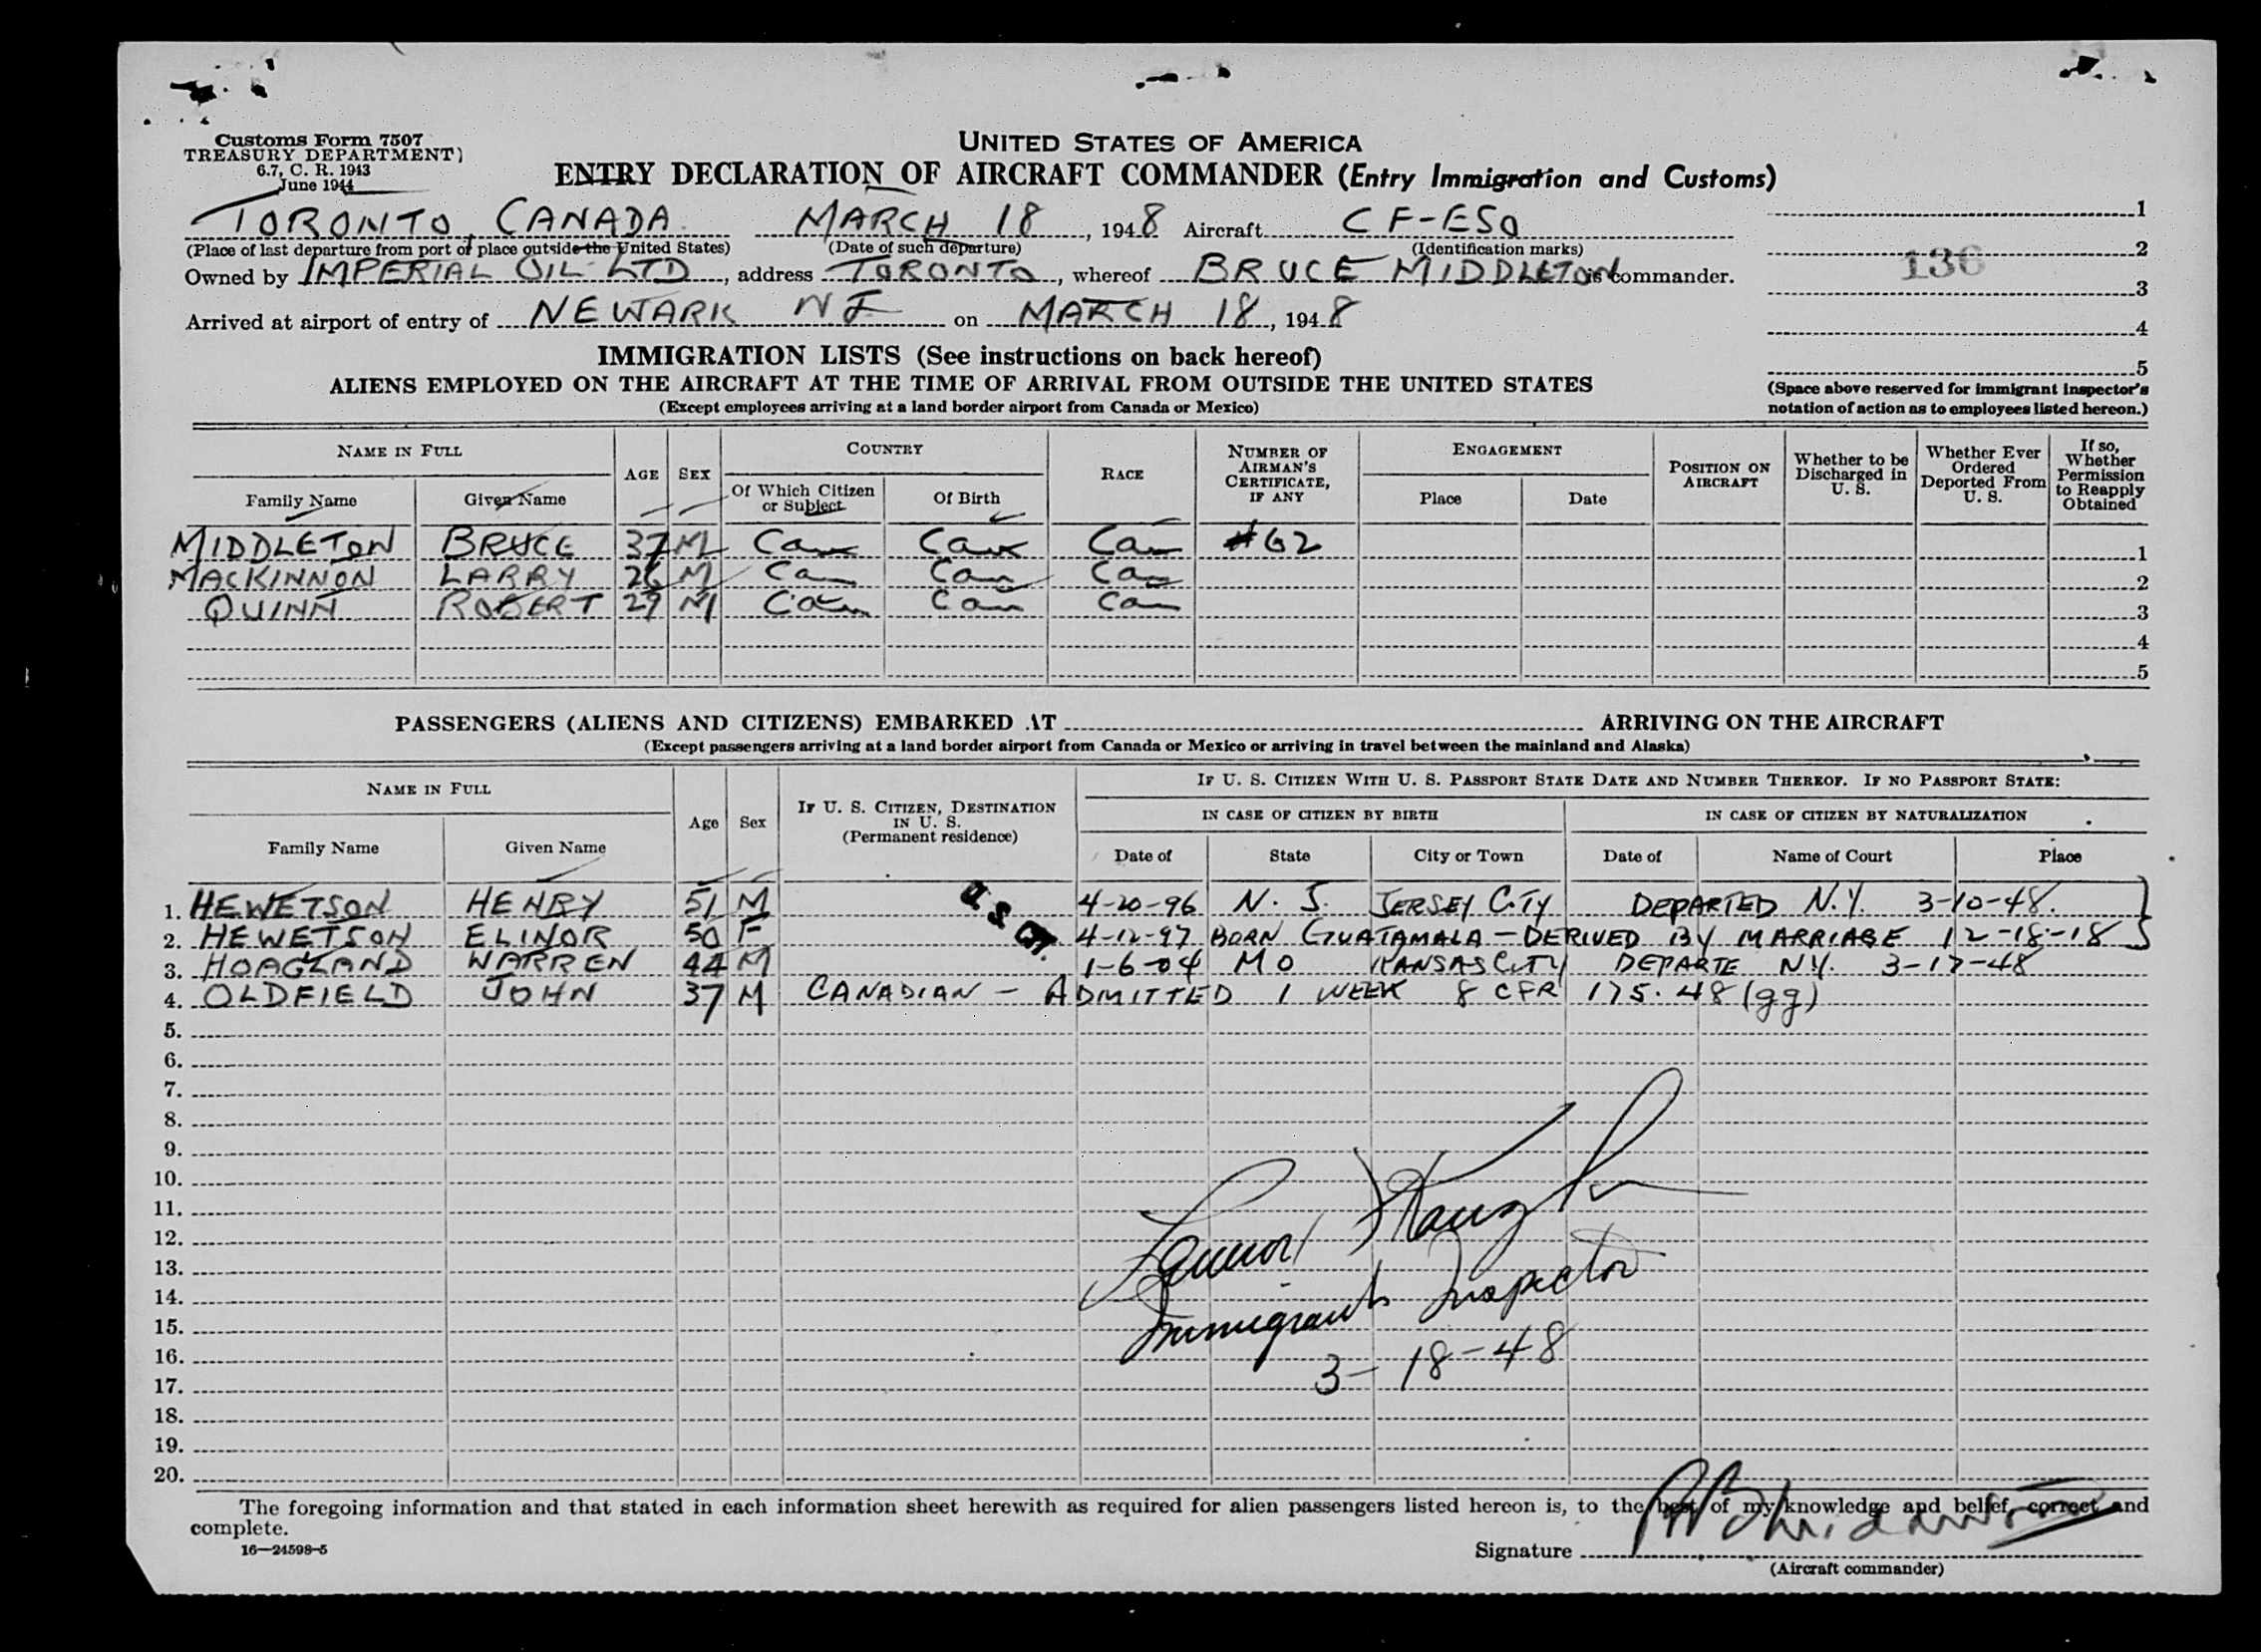 Customs Form 7507
TREASURY DEPARTMENT)
6.7, C. R. 1943
June 1944
UNITED STATES OF AMERICA
ENTRY DECLARATION OF AIRCRAFT COMMANDER (Entry Immigration and Customs)
TORONTO, CANADA MARCH 18, 1948 Aircraft CF-ESO 1
(Place of last departure from port of place outside the United States) (Date of such departure) (Identification marks)
2
136
Owned by IMPERIAL OIL LTD, address TORONTO, whereof BRUCE MIDDLETON is commander.
3
Arrived at airport of entry of NEWARK NJ on MARCH 18, 1948
4
IMMIGRATION LISTS (See instructions on back hereof)
5
ALIENS EMPLOYED ON THE AIRCRAFT AT THE TIME OF ARRIVAL FROM OUTSIDE THE UNITED STATES
(Except employees arriving at a land border airport from Canada or Mexico)
(Space above reserved for immigrant inspector's
notation of action as to employees listed hereon.)
NAME IN FULL AGE SEX COUNTRY RACE NUMBER OF AIRMAN'S CERTIFICATE, IF ANY ENGAGEMENT POSITION ON AIRCRAFT Whether to be Discharged in U. S. Whether Ever Ordered Deported From U. S. If so, Whether Permission to Reapply Obtained
Family Name Given Name Of Which Citizen or Subject Of Birth Place Date
MIDDLETON BRUCE 37 M Can Can Can #62 1
MACKINNON LARRY 26 M Can Can Can 2
QUINN ROBERT 29 M Can Can Can 3
4
5
PASSENGERS (ALIENS AND CITIZENS) EMBARKED AT ARRIVING ON THE AIRCRAFT
(Except passengers arriving at a land border airport from Canada or Mexico or arriving in travel between the mainland and Alaska)
NAME IN FULL Age Sex IF U. S. CITIZEN, DESTINATION IN U. S. (Permanent residence) IF U. S. CITIZEN WITH U. S. PASSPORT STATE DATE AND NUMBER THEREOF. IF NO PASSPORT STATE:
IN CASE OF CITIZEN BY BIRTH IN CASE OF CITIZEN BY NATURALIZATION
Family Name Given Name Date of State City or Town Date of Name of Court Place
1. HEWETSON HENRY 51 M 4-20-96 N. J. JERSEY CITY DEPARTED N.Y. 3-10-48.
2. HEWETSON ELINOR 50 F 4-12-97 BORN GUATAMALA - DERIVED BY MARRIAGE 12-18-18
3. HOAGLAND WARREN 44 M 1-6-04 MO KANSAS CITY DEPARTE N.Y. 3-17-48
4. OLDFIELD JOHN 37 M CANADIAN - ADMITTED 1 WEEK 8 CFR 175.48(gg)
5.
6.
7.
8.
9.
10.
11.
12.
13.
14.
15.
16.
17.
18.
19.
20.
Immigrant Inspector
3-18-48
The foregoing information and that stated in each information sheet herewith as required for alien passengers listed hereon is, to the best of my knowledge and belief, correct and
complete.
16—24598-5
Signature
(Aircraft commander)